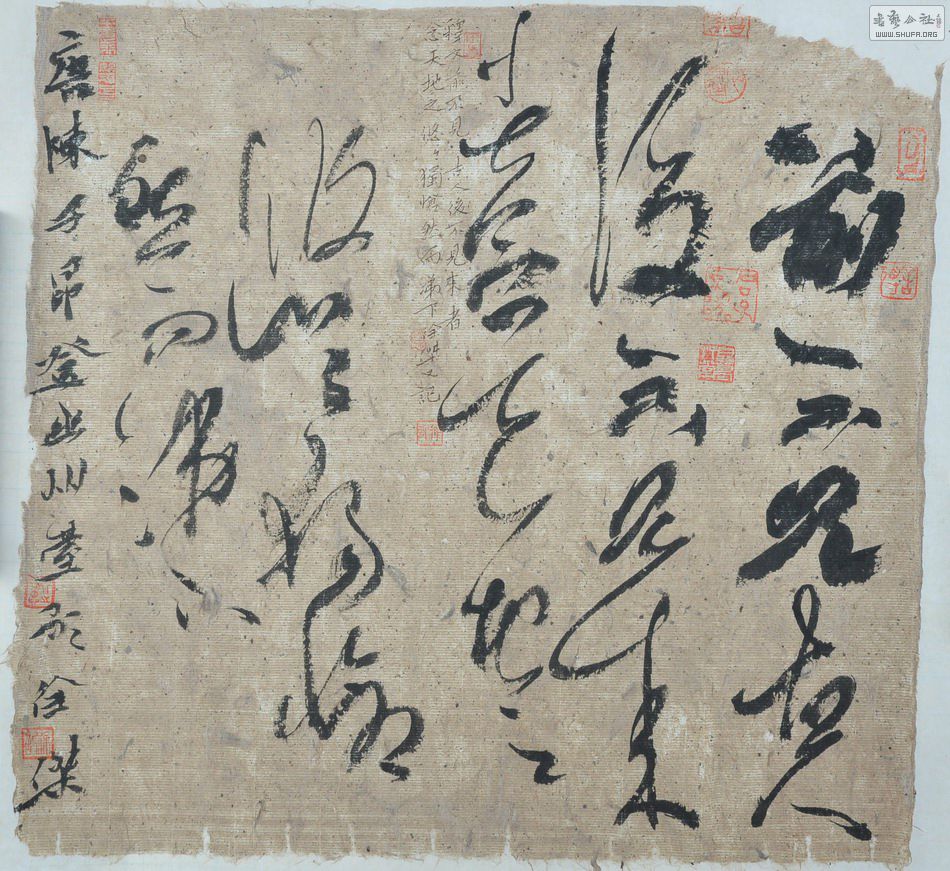 前不見古人
後不見来
者念天地之
悠悠獨愴
然而涕下
唐陳子昂登幽州臺歌徐桀
釋文前不見古人後不見来者
念天地之悠〻獨愴然而涕下徐桀記
書藝公社
WWW.SHUFA.ORG